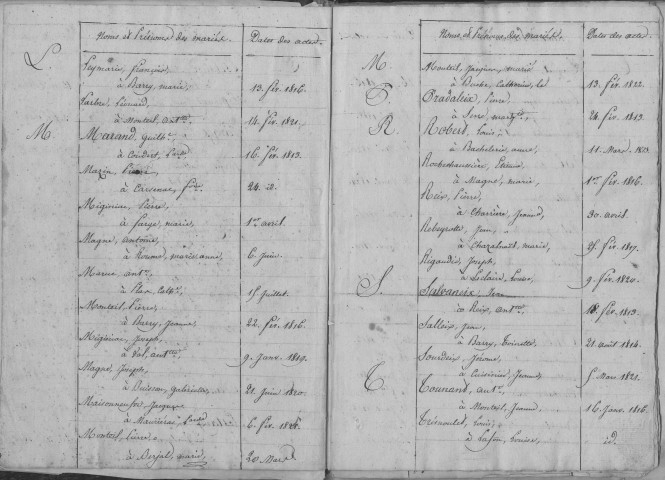 Noms et Prénoms des mariés. Dates des actes.
L.
Leymarie, françois,
à Barry, marie, 13. fév. 1816.
Larbre, Léonard,
à Monteil, ant.te, 14. fév. 1821.
M
Marand, guilh.e
à Coudert, 16. fév. 1813.
Mazin,
à 24. id.
Migineux, Pierre,
à Farge, marie, 1er avril.
Magne, antoine,
à marie anne, 6. juin.
ant.ne,
à Cath.e, 15. juillet.
Monteil, Pierre,
à Barry, Jeanne, 22. fév. 1816.
Joseph,
à Val, ant.tte, 9. Janv. 1819.
Magne, Joseph,
à Buisson, gabrielle, 21. Juin 1820.
Maisonneuve, Jacques
à 6. fév.
Monteil, Pierre,
à marie, 20. Mars
Noms et Prénoms des mariés. Dates des actes.
M.
Monteil, Jacques,
à Catherine, 13. fév. 1822.
P
Pradaleix, Pierre,
à Serre, 24. fév. 1813.
R
Robert, Louis,
à Bachelerie, anne, 11. Mars
Rochechaussière, Etienne,
à Magne, marie, 1er fév. 1816.
Reix, Pierre,
à Charrière, Jeanne, 30. avril.
Rebeyrotte, Jean,
à Chazalnoël, marie, 25. fév. 1817.
Rigaudie, Joseph,
à Leclair, 9. fév. 1820.
S.
Salvaneix, Jean
à Reix, ant.te, 18. fév. 1813.
Salleix, Jean,
à Barry, Toinette, 21. août 1814.
Sourdeix, Jérôme,
à Cuisinier, Jeanne, 5. Mars 1821.
T.
Tournand, ant.e,
à Monteil, Jeanne. 16. Janv. 1816.
Treinoulet, Louis,
à Lafon, Louise, id.